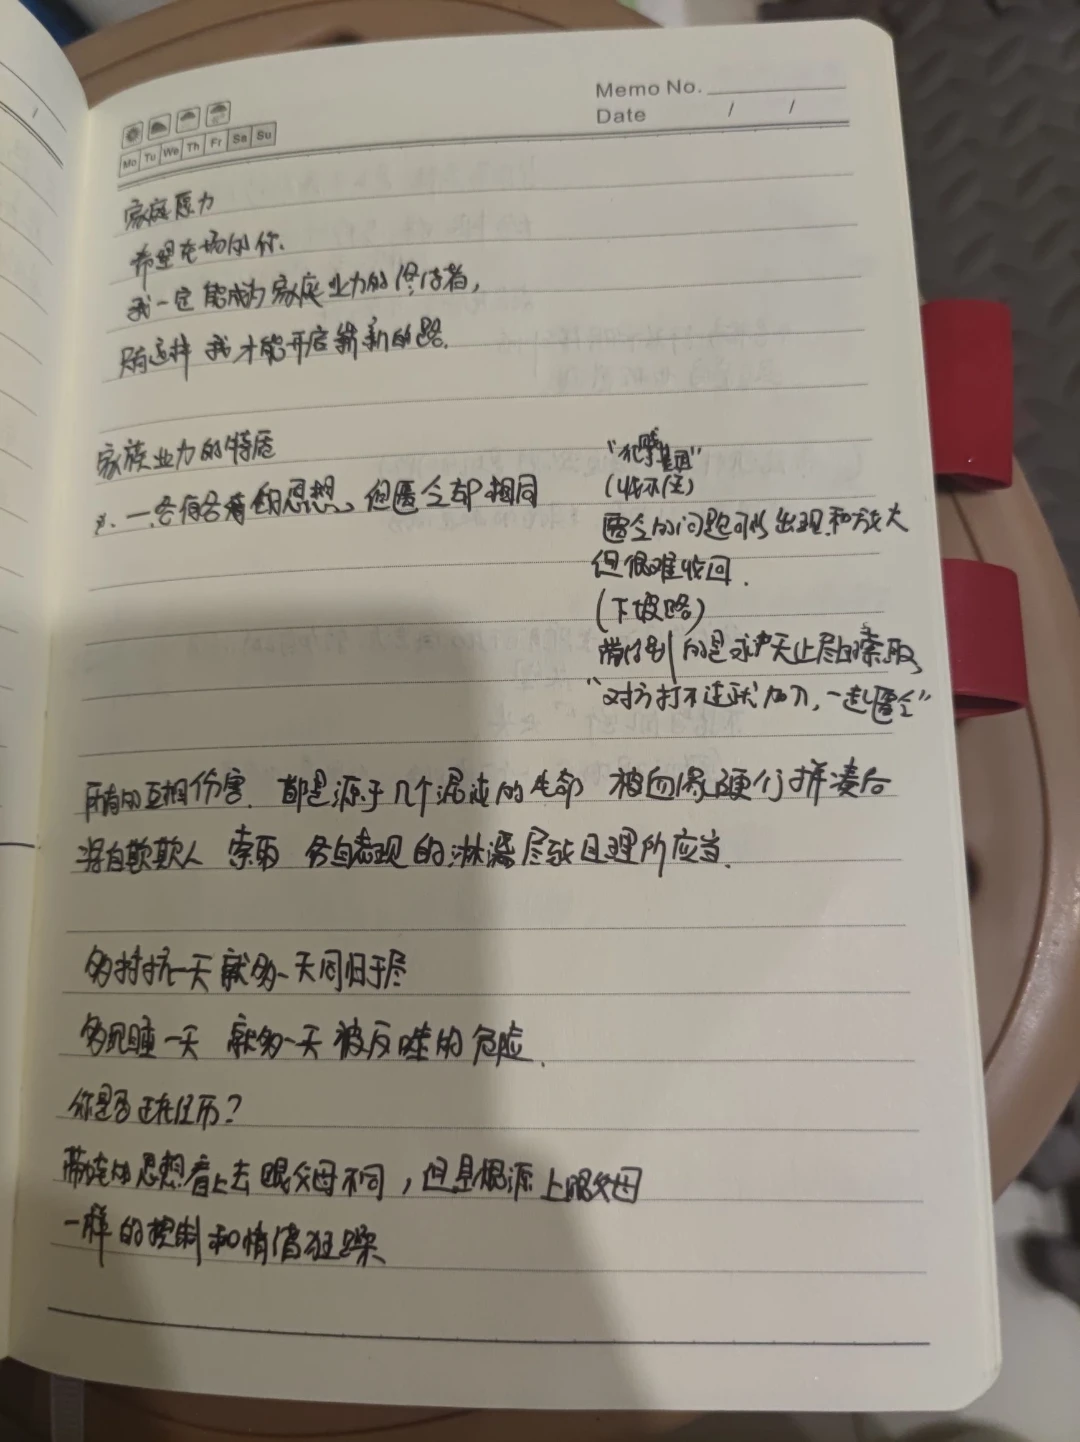 Memo No.
Date / /
Mo Tu We Th Fr Sa Su
家庭愿力
希望在场的你.
我一定能成为家庭业力的终结者,
只有这样 我才能开启新的路.
家族业力的特质
一.各有各有的思想、但匮乏却相同
"犯贱基因"
(收不住)
匮乏的问题可以出现和放大
但很难收回.
(下坡路)
的是永无止尽的索取,
"对方打不过就加入,一起匮乏"
所有的互相伤害. 都是源于几个混沌的生命 被血缘硬行拼凑后
将自欺欺人 索取 各自表现的淋漓尽致且理所应当.
多对抗一天 就多一天同归于尽
多沉睡一天 就多一天被反噬的危险.
你是否正在经历?
带的思想看上去跟父母不同,但是根源上跟父母
一样的控制和情绪狂躁